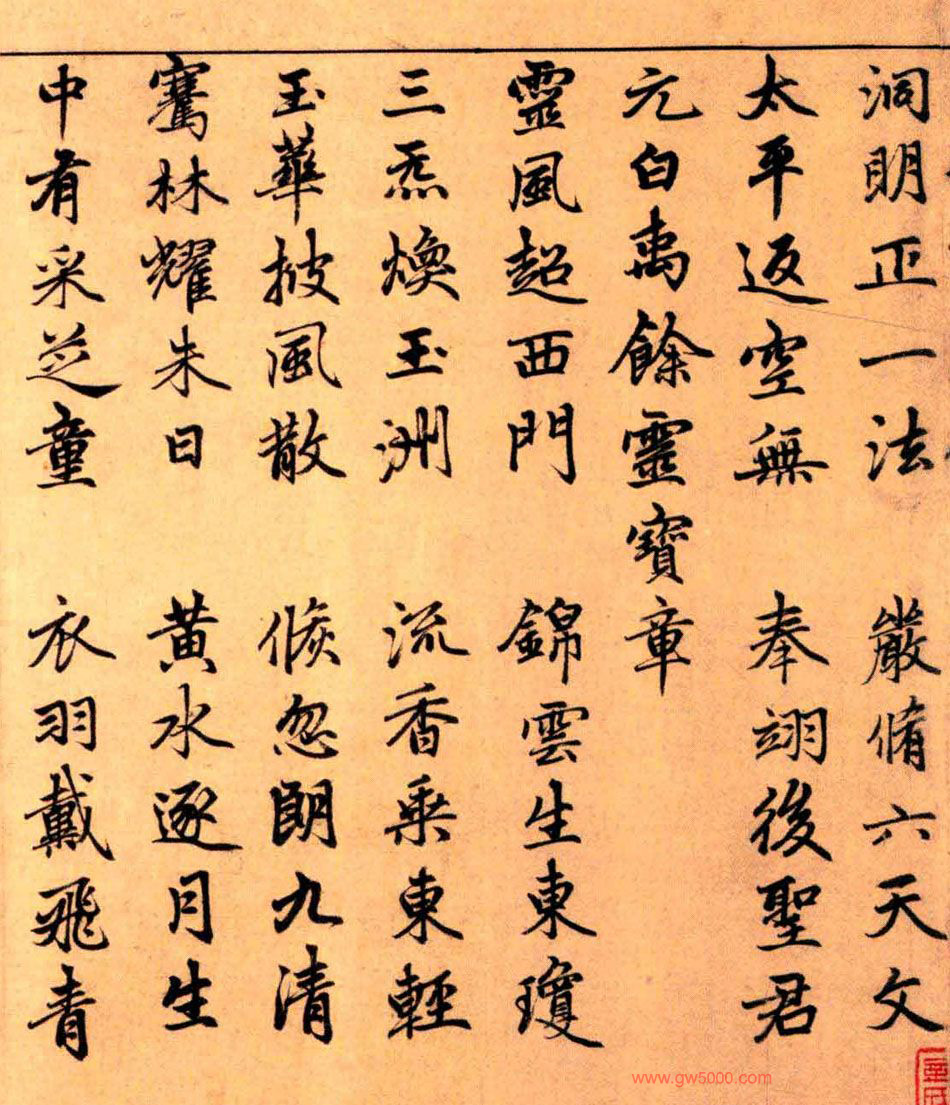 洞明正一法 嚴脩六天文
太平返空無 奉翊後聖君
元白禹餘靈寶章
靈風超西門 錦雲生東瓊
三炁煥玉洲 流香乘東輕
玉華披風散 倐忽朗九清
騫林耀朱日 黃水逐月生
中有采芝童 衣羽戴飛青
www.gw5000.com